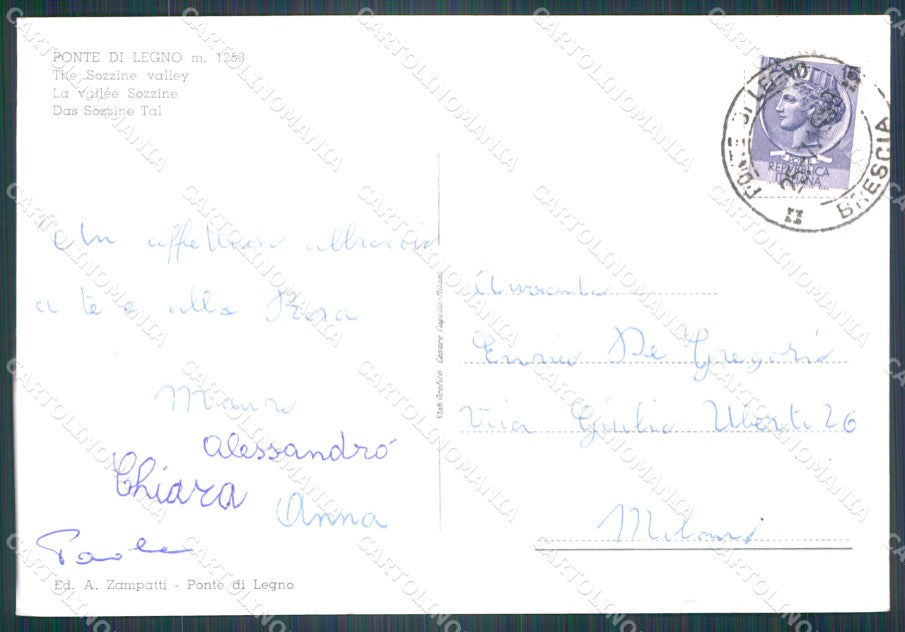 PONTE DI LEGNO m. 1258
The Sozzine valley
La vallée Sozzine
Das Sozzine Tal
PONTE DI LEGNO
BRESCIA
REPVBBLICA
ITALIANA
a te e alla Rosa
Mauro
Alessandro
Chiara
Anna
Paola
Enrico De Gregorio
Via Giulio Uberti 26
Milano
Stab Grafico Cesare Capello - Milano
Ed. A. Zampatti - Ponte di Legno
CARTOLINOMANIA